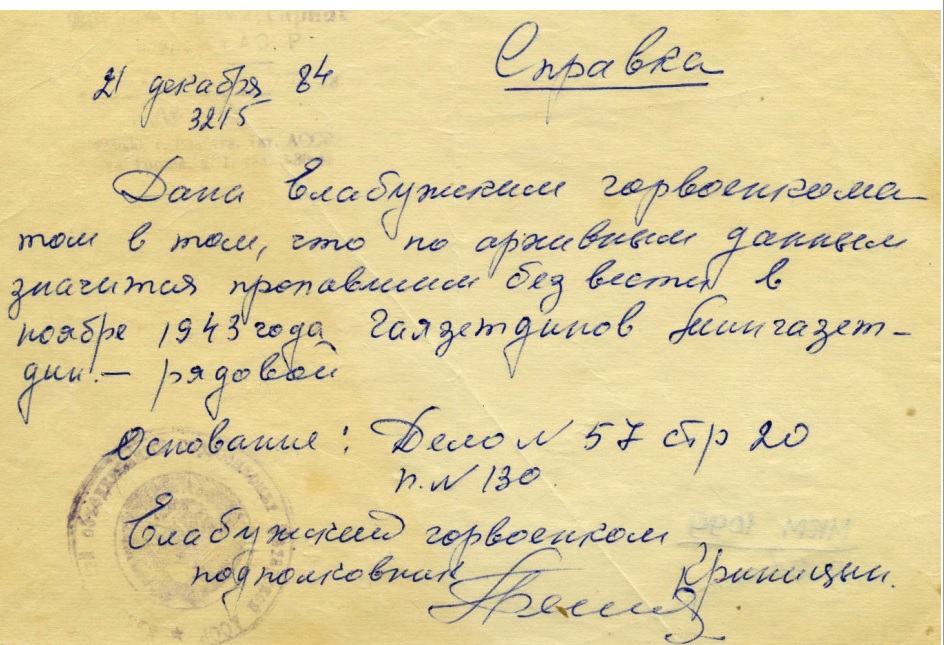 Справка
21 декабря 84
3215
Дана Елабужским горвоенкома
том в том, что по архивным данным
значится пропавшим без вести в
ноябре 1943 года Гаязетдинов Мингазет-
дин. – рядовой
Основание: Дело N 57 стр 20
п. N 130.
Елабужский горвоенком
подполковник Криницын.